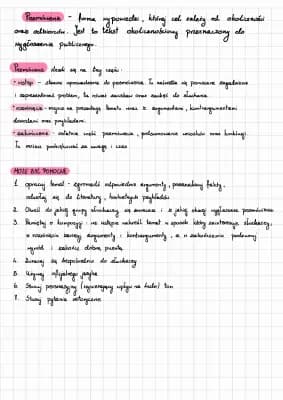 Przemówienie - forma wypowiedzi, której cel zależy od okoliczności
oraz odbiorców. Jest to tekst okolicznościowy przeznaczony do
wygłoszenia publicznego.
Przemówienie dzieli się na trzy części:
• wstęp - słowne wprowadzenie do przemówienia. Tu należy się pomocne zagadnienie
i zaprezentować problem, tu mówca zwraca się do słuchacza
• rozwinięcie - miejsce na prezentację tematu wraz z argumentami, kontrargumentami
dowodami oraz przykładami.
• zakończenie - ostatnia część przemówienia, podsumowanie wniosków oraz
Tu można podziękować za uwagę i czas
MOŻE BYĆ POMOCNE
1. opracuj temat - zgromadź odpowiednie argumenty, przeanalizuj fakty,
odwołaj się do literatury, przykładów
2. Określ do jakiej grupy słuchaczy się zwracasz i z jakiej okazji wygłaszasz przemówienie
3. Pamiętaj o kompozycji: na wstępie nakreśl temat w sposób który zainteresuje słuchaczy,
w rozwinięciu zawrzyj argumenty i kontrargumenty, a w zakończeniu podsumuj
wywód i zakończ dobrą puentą
4. Zwracaj się bezpośrednio do słuchaczy
5. Używaj oficjalnego języka
6. Stosuj perswazyjny (wywierający wpływ na ludzi) ton
7. Stosuj pytania retoryczne